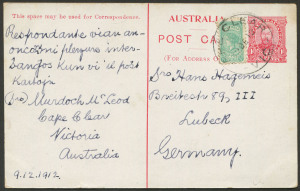 This space may be used for Correspondence.
Respondante vian an-
oncon mi plezure inter-
ŝanĝos kun vi il. post
Kartojn
Murdoch McLeod
Cape Clear
Victoria
Australia
9.12.1912
AUSTRALIA
POST CA
(FOR ADDRESS O
Sro Hans Hagemeis
Breitestr 89, III
Lubeck
Germany.